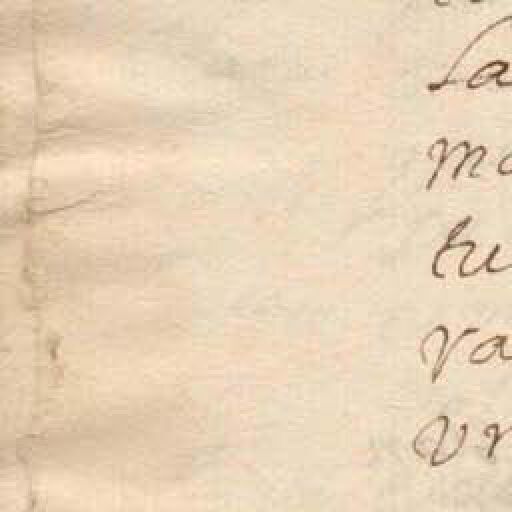 sa
ma
tu
va
vn